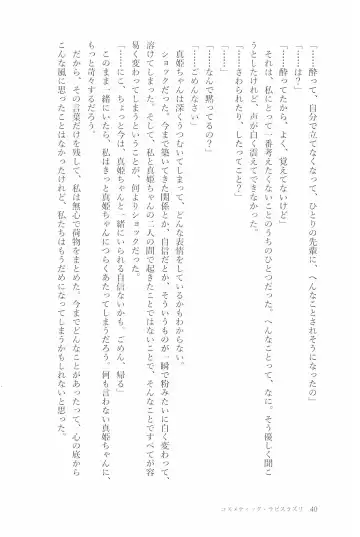 「……酔って、自分で立てなくなって、ひとりの先輩に、へんなことされそうになったの」
「……は？」
「……酔ってたから、よく、覚えてないけど」
それは、私にとって一番考えたくないことのうちのひとつだった。へんなことって、なに。そう優しく聞こ
うとしたけれど、声が白く震えてできなかった。
「……さわられたり、したってこと？」
「……」
「なんで黙ってるの？」
「……ごめんなさい」
真姫ちゃんは深くうつむいてしまって、どんな表情をしているかもわからない。
ショックだった。今まで築いてきた関係とか、自信だとか、そういうものが一瞬で粉みたいに白く変わって、
溶けてしまった。そして、私と真姫ちゃんの二人の間で起きたことではないことで、そんなことですべてが容
易く変わってしまうということが、何よりショックだった。
「……にこ、ちょっと今は、真姫ちゃんと一緒にいられる自信ないかも。ごめん、帰る」
このまま一緒にいたら、私はきっと真姫ちゃんにつらくあたってしまうだろう。何も言わない真姫ちゃんに、
もっと苛々するだろう。
だから、その言葉だけを残して、私は無心で荷物をまとめた。今までどんなことがあったって、心の底から
こんな風に思ったことはなかったけれど、私たちはもうだめになってしまうかもしれないと思った。
コスメティック・ラピスラズリ 40